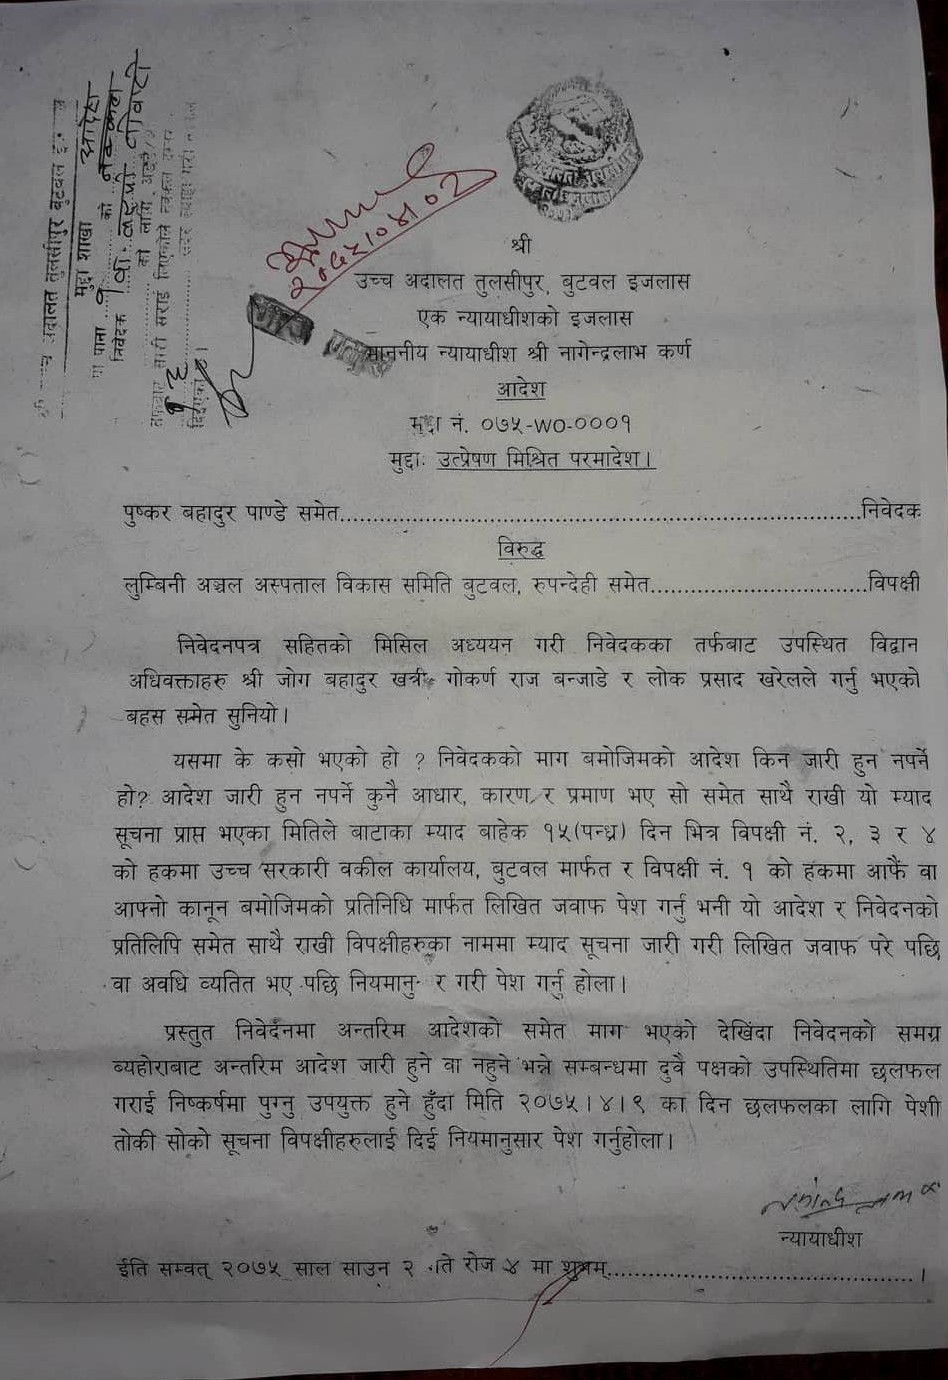 श्री
उच्च अदालत तुलसीपुर, बुटवल इजलास
एक न्यायाधीशको इजलास
माननीय न्यायाधीश श्री नागेन्द्रलाभ कर्ण
आदेश
मुद्दा नं. ०७५-WO-०००१
मुद्दाः उत्प्रेषण मिश्रित परमादेश।
पुष्कर बहादुर पाण्डे समेत....................................................................निवेदक
विरुद्ध
लुम्बिनी अञ्चल अस्पताल विकास समिति बुटवल, रुपन्देही समेत..............................विपक्षी
निवेदनपत्र सहितको मिसिल अध्ययन गरी निवेदकका तर्फबाट उपस्थित विद्वान
अधिवक्ताहरु श्री जोग बहादुर खत्री गोकर्ण राज बन्जाडे र लोक प्रसाद खरेलले गर्नु भएको
बहस समेत सुनियो।
यसमा के कसो भएको हो ? निवेदकको माग बमोजिमको आदेश किन जारी हुन नपर्ने
हो? आदेश जारी हुन नपर्ने कुनै आधार, कारण र प्रमाण भए सो समेत साथै राखी यो म्याद
सूचना प्राप्त भएका मितिले बाटाका म्याद बाहेक १५(पन्ध्र) दिन भित्र विपक्षी नं. २, ३ र ४
को हकमा उच्च सरकारी वकील कार्यालय, बुटवल मार्फत र विपक्षी नं. १ को हकमा आफैं वा
आफ्नो कानून बमोजिमको प्रतिनिधि मार्फत लिखित जवाफ पेश गर्नु भनी यो आदेश र निवेदनको
प्रतिलिपि समेत साथै राखी विपक्षीहरुका नाममा म्याद सूचना जारी गरी लिखित जवाफ परे पछि
वा अवधि व्यतित भए पछि र गरी पेश गर्नु होला।
प्रस्तुत निवेदनमा अन्तरिम आदेशको समेत माग भएको देखिंदा निवेदनको समग्र
ब्यहोराबाट अन्तरिम आदेश जारी हुने वा नहुने भन्ने सम्बन्धमा दुवै पक्षको उपस्थितिमा छलफल
गराई निष्कर्षमा पुग्नु उपयुक्त हुने हुँदा मिति २०७५।४।९ का दिन छलफलका लागि पेशी
तोकी सोको सूचना विपक्षीहरुलाई दिई नियमानुसार पेश गर्नुहोला।
न्यायाधीश
ईति सम्वत् २०७५ साल साउन २ रोज ४ मा शुभम्..............................................।